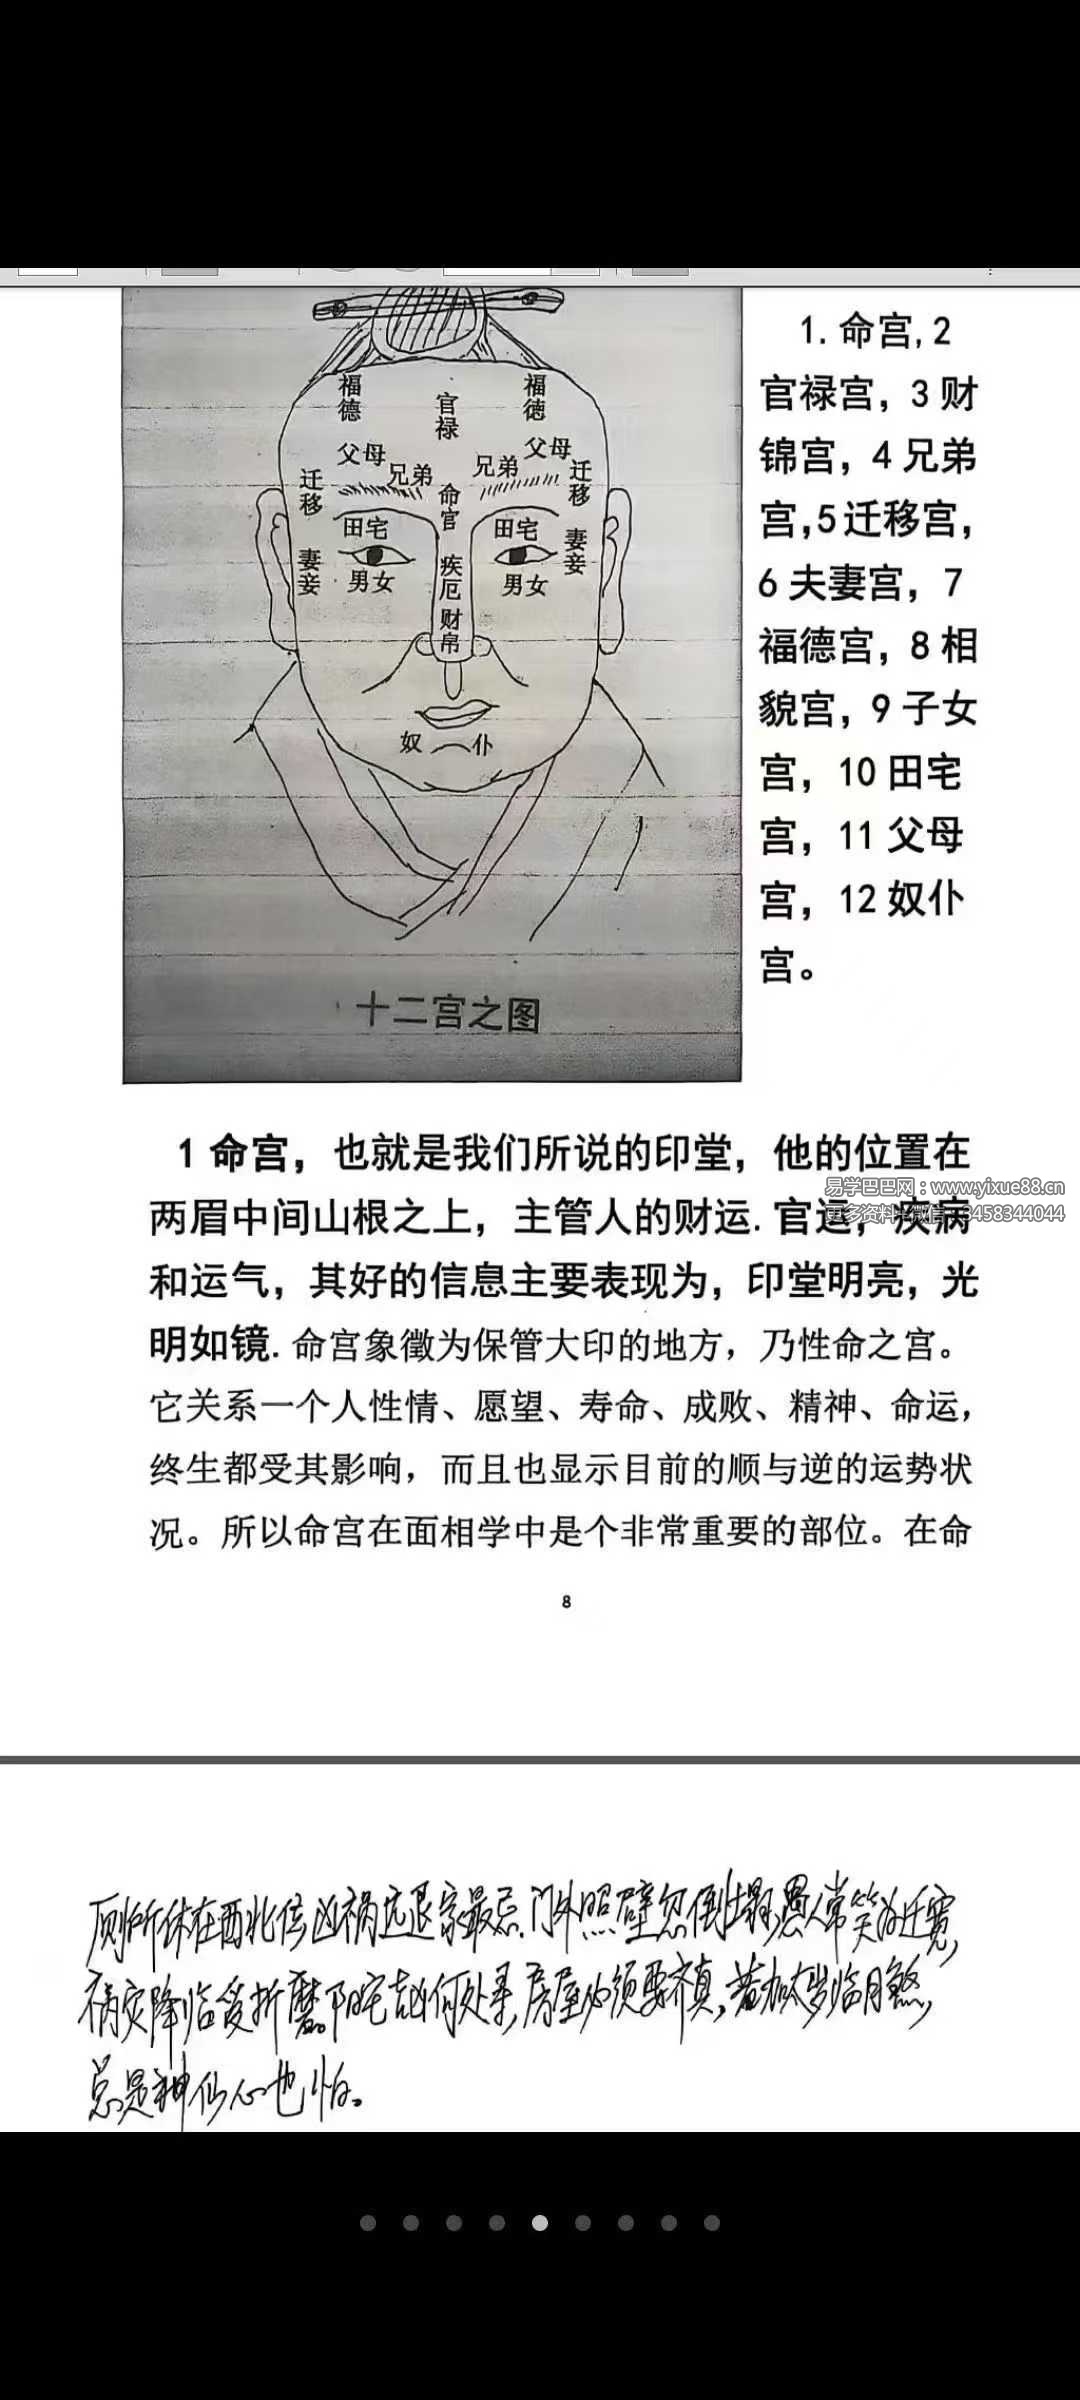 福德
官禄
福德
父母
兄弟
兄弟
父母
迁移
命宫
迁移
田宅
田宅
妻妾
疾厄
妻妾
男女
男女
财帛
奴仆
十二宫之图
1.命宫,2
官禄宫，3财
锦宫，4兄弟
宫,5迁移宫，
6夫妻宫，7
福德宫，8相
貌宫，9子女
宫，10田宅
宫，11父母
宫，12奴仆
宫。
1命宫，也就是我们所说的印堂，他的位置在
两眉中间山根之上，主管人的财运.官运，疾病
和运气，其好的信息主要表现为，印堂明亮，光
明如镜.命宫象徵为保管大印的地方，乃性命之宫。
它关系一个人性情、愿望、寿命、成败、精神、命运，
终生都受其影响，而且也显示目前的顺与逆的运势状
况。所以命宫在面相学中是个非常重要的部位。在命
易学巴巴网：www.yixue88.cn
更多资料+微信：3458344044
8
厕所休在酉北位,凶祸退家最忌.门外照壁忽倒塌,愚人常笑为迁宽,
祸灾降临受折磨.阳宅吉凶何处寻,房屋必须要齐真,若加太岁临月煞,
总是神仙心也怕。